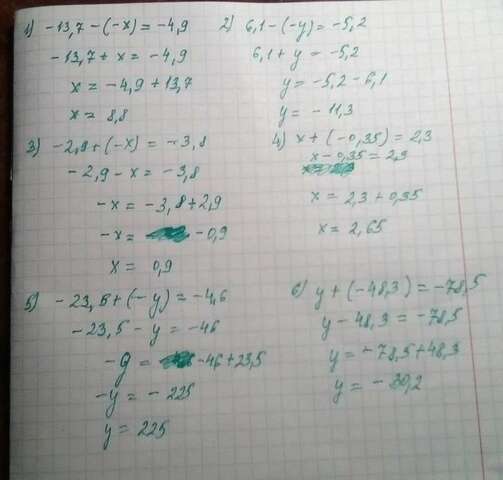 1) -13,7 - (-x) = -4,9
-13,7 + x = -4,9
x = -4,9 + 13,7
x = 8,8
2) 6,1 - (-y) = -5,2
6,1 + y = -5,2
y = -5,2 - 6,1
y = -11,3
3) -2,9 + (-x) = -3,8
-2,9 - x = -3,8
-x = -3,8 + 2,9
-x = -0,9
x = 0,9
4) x + (-0,35) = 2,3
x - 0,35 = 2,3
x = 2,3 + 0,35
x = 2,65
5) -23,5 + (-y) = -4,6
-23,5 - y = -46
-y = -46 + 23,5
-y = -225
y = 225
6) y + (-48,3) = -78,5
y - 48,3 = -78,5
y = -78,5 + 48,3
y = -30,2